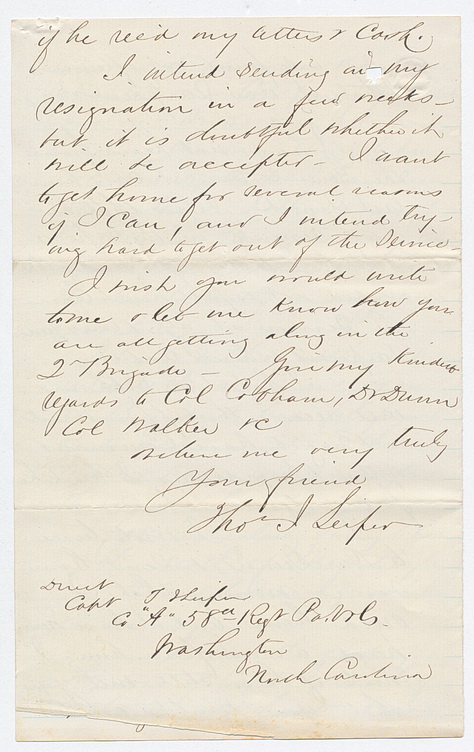 if he rec'd my letters & Cook.
I intend sending in my
resignation in a few weeks -
but it is doubtful whether it
will be accepted - I want
to get home for several reasons
if I can, and I intend try-
ing hard to get out of the service -
I wish you would write
to me & let me know how you
are all getting along in the
2nd Brigade - Give my kindest
regards to Col Cobham, Dr Dunn
Col Walker &c
Believe me very truly
Your friend
Thos J Leiper
Direct
Capt T J Leiper
Co "A" 58th Regt Pa Vols.
Washington
North Carolina